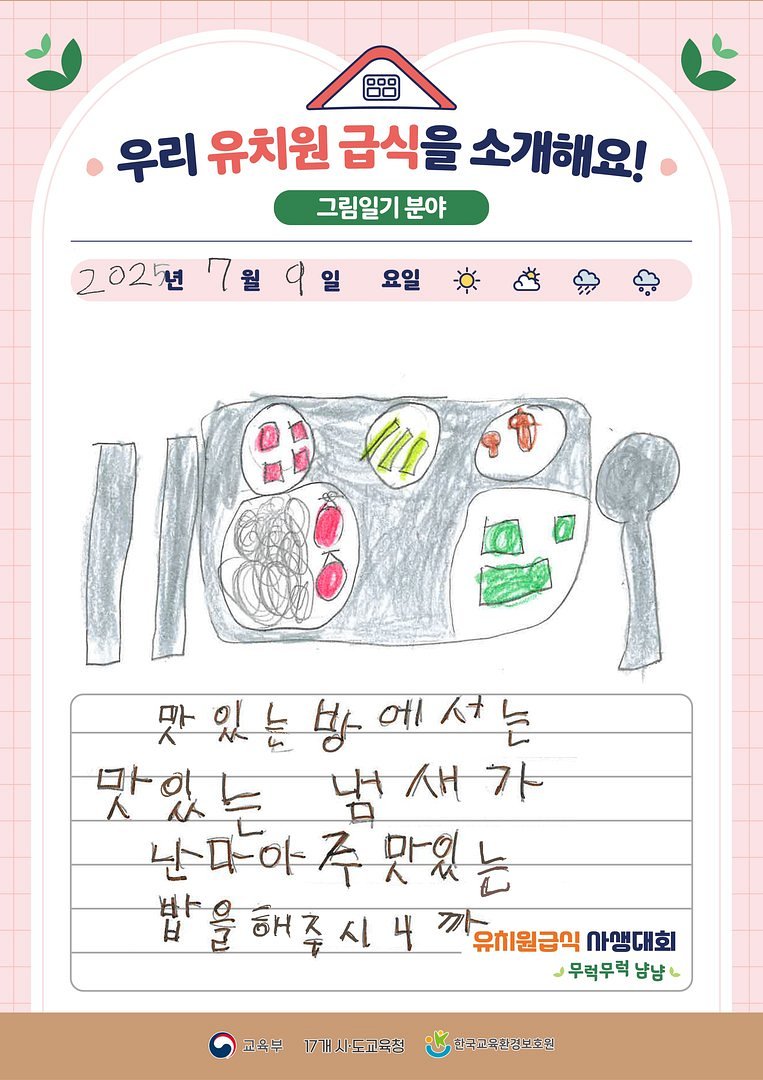 우리 유치원 급식을 소개해요!
그림일기 분야
2025년 7월 9일 요일
맛있는방에서는
맛있는 냄새가
난마아주맛있는
밥을해주시내까
유치원급식 사생대회
무럭무럭 냠냠
교육부 17개 시·도교육청 한국교육환경보호원